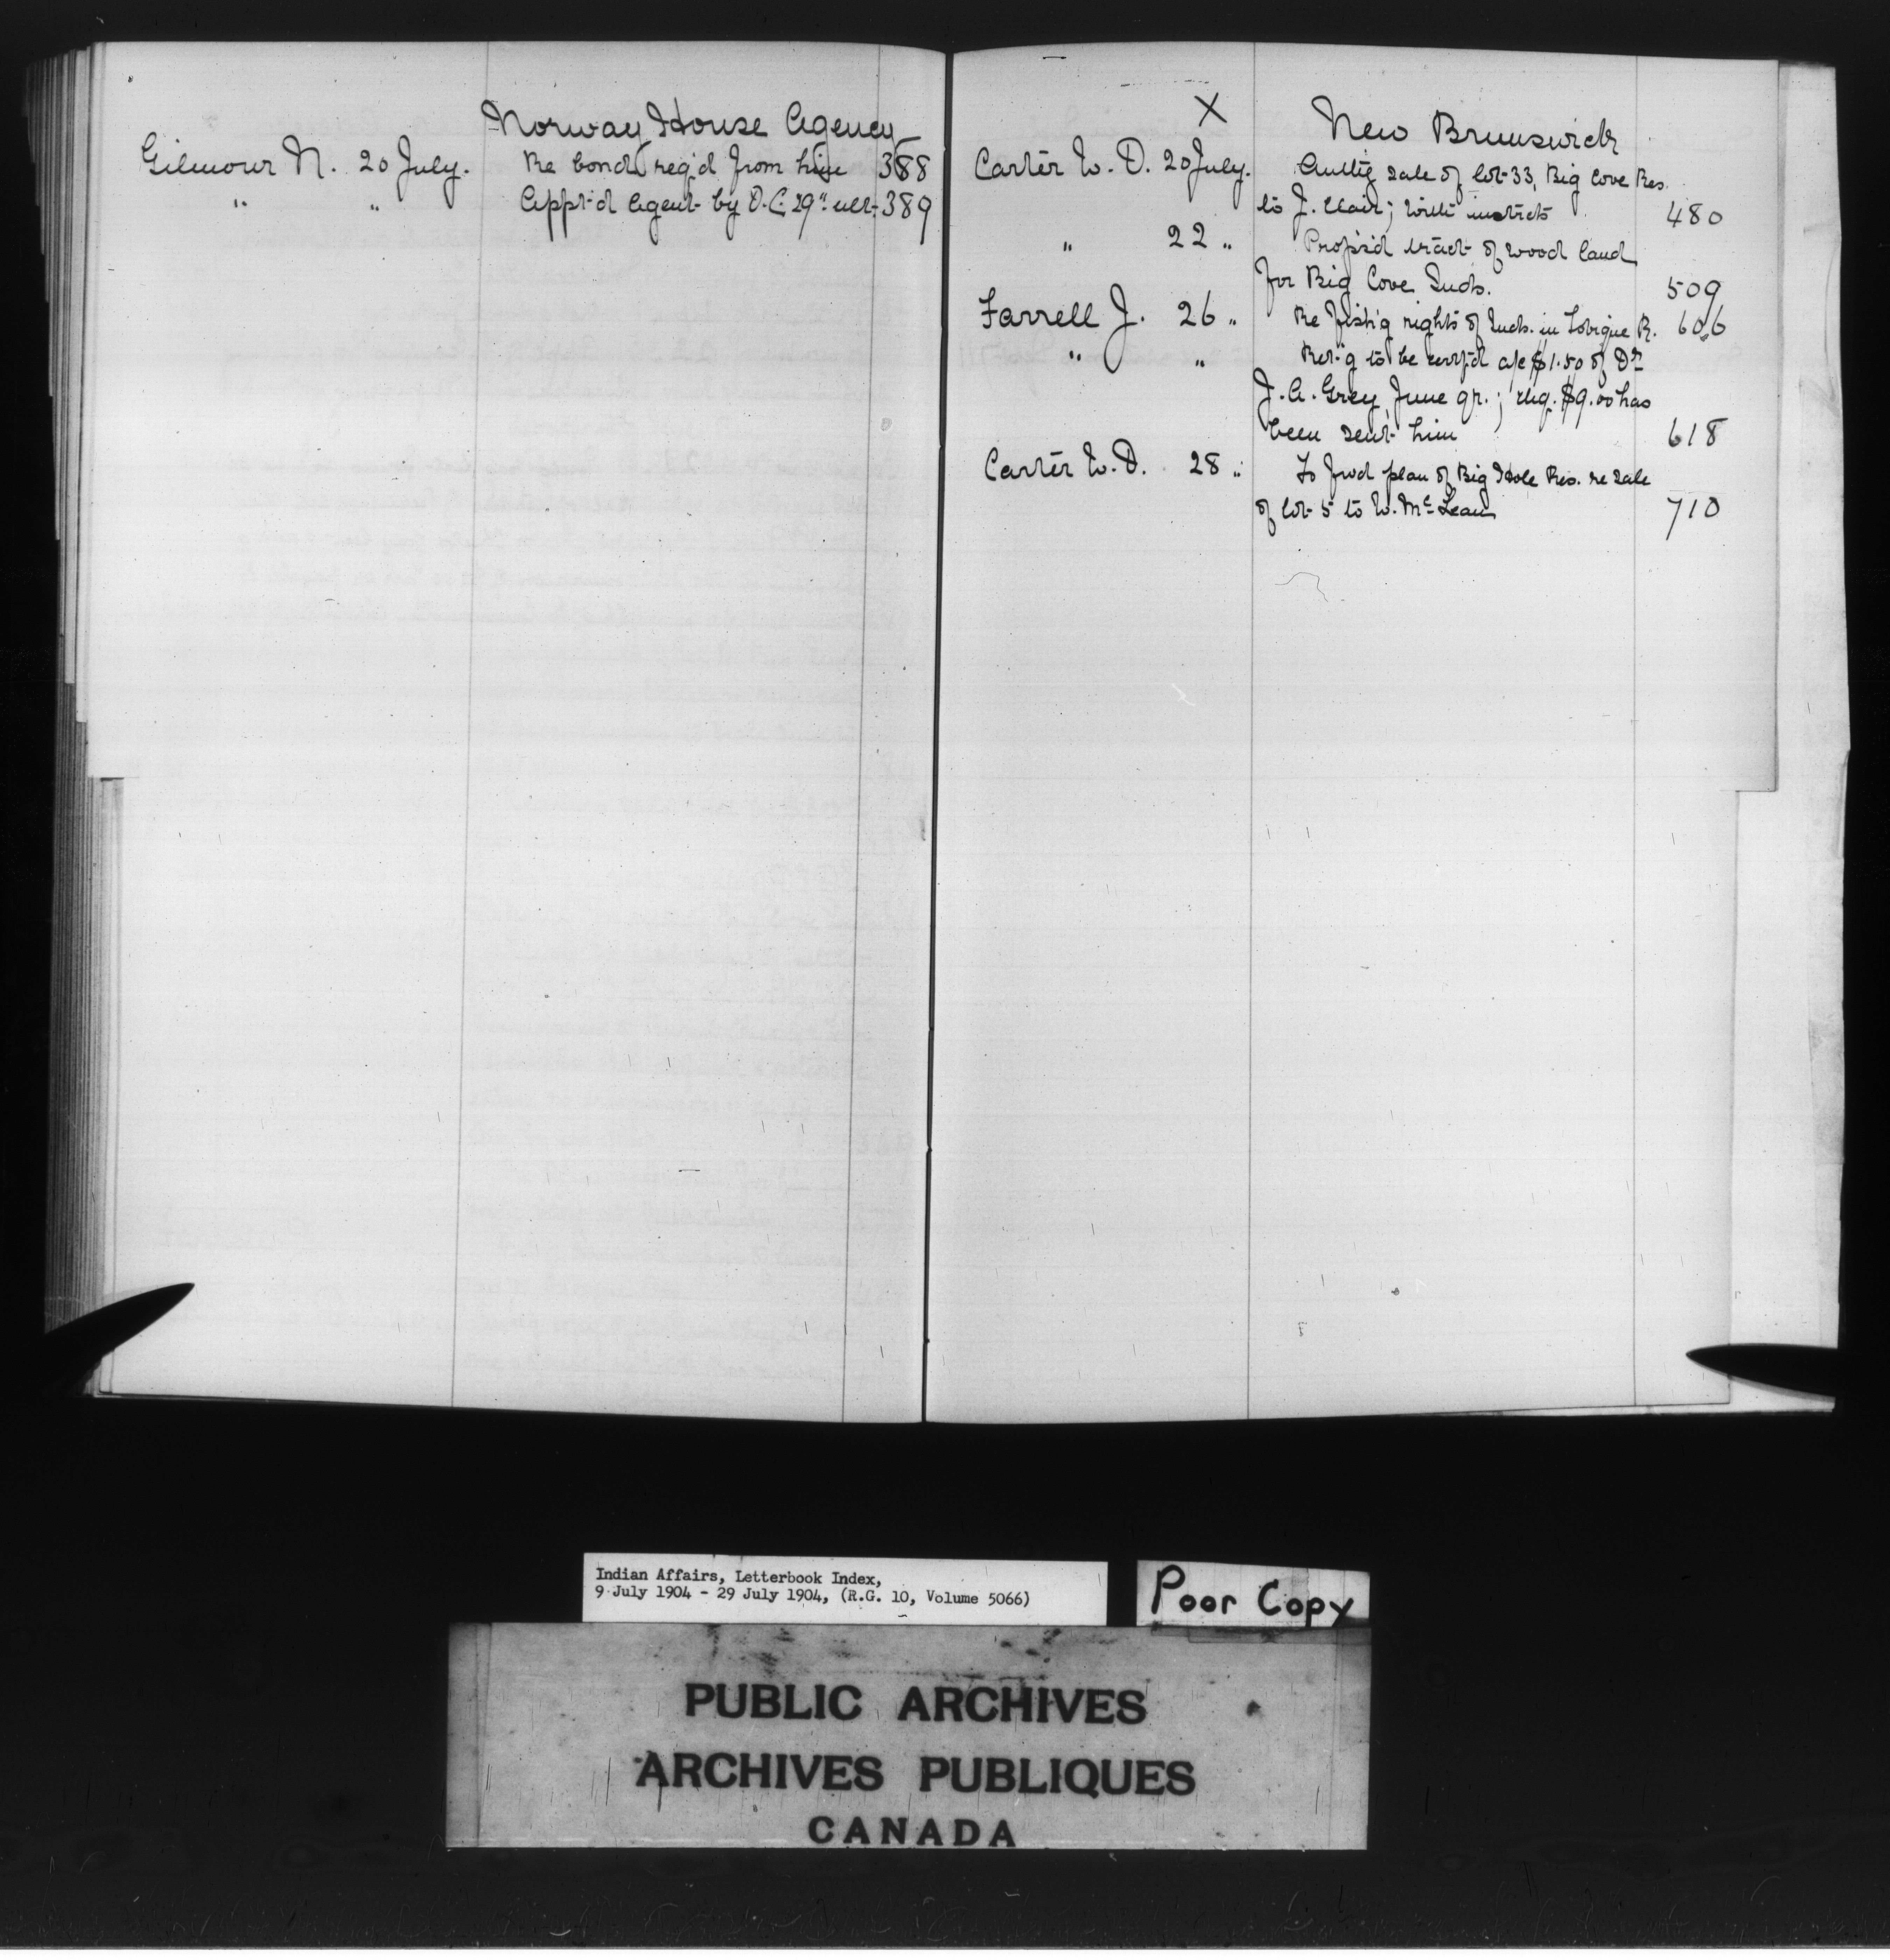 Norway House Agency
Gilmour N. 20 July. Re bond req'd from him 388
" " App't'd Agent by O.C. 29" ult. 389
X New Brunswick
Carter W. D. 20 July. sale of lot 33, Big Cove Res.
to J. Clair; with instrcts 480
" 22 " Prop's'd tract of wood land
for Big Cove Inds. 509
Farrell J. 26 " Re fish'g rights of Inds. in Tobique R. 606
" " Ret'g to be certf'd a/c $1.50 of Dr
J. A. Grey, June qr.; chq. $9.00 has
been sent him 618
Carter W. D. 28 " To fwd plan of Big Hole Res. re sale
of lot 5 to W. McLean 710
Indian Affairs, Letterbook Index,
9 July 1904 - 29 July 1904, (R.G. 10, Volume 5066)
Poor Copy
PUBLIC ARCHIVES
ARCHIVES PUBLIQUES
CANADA